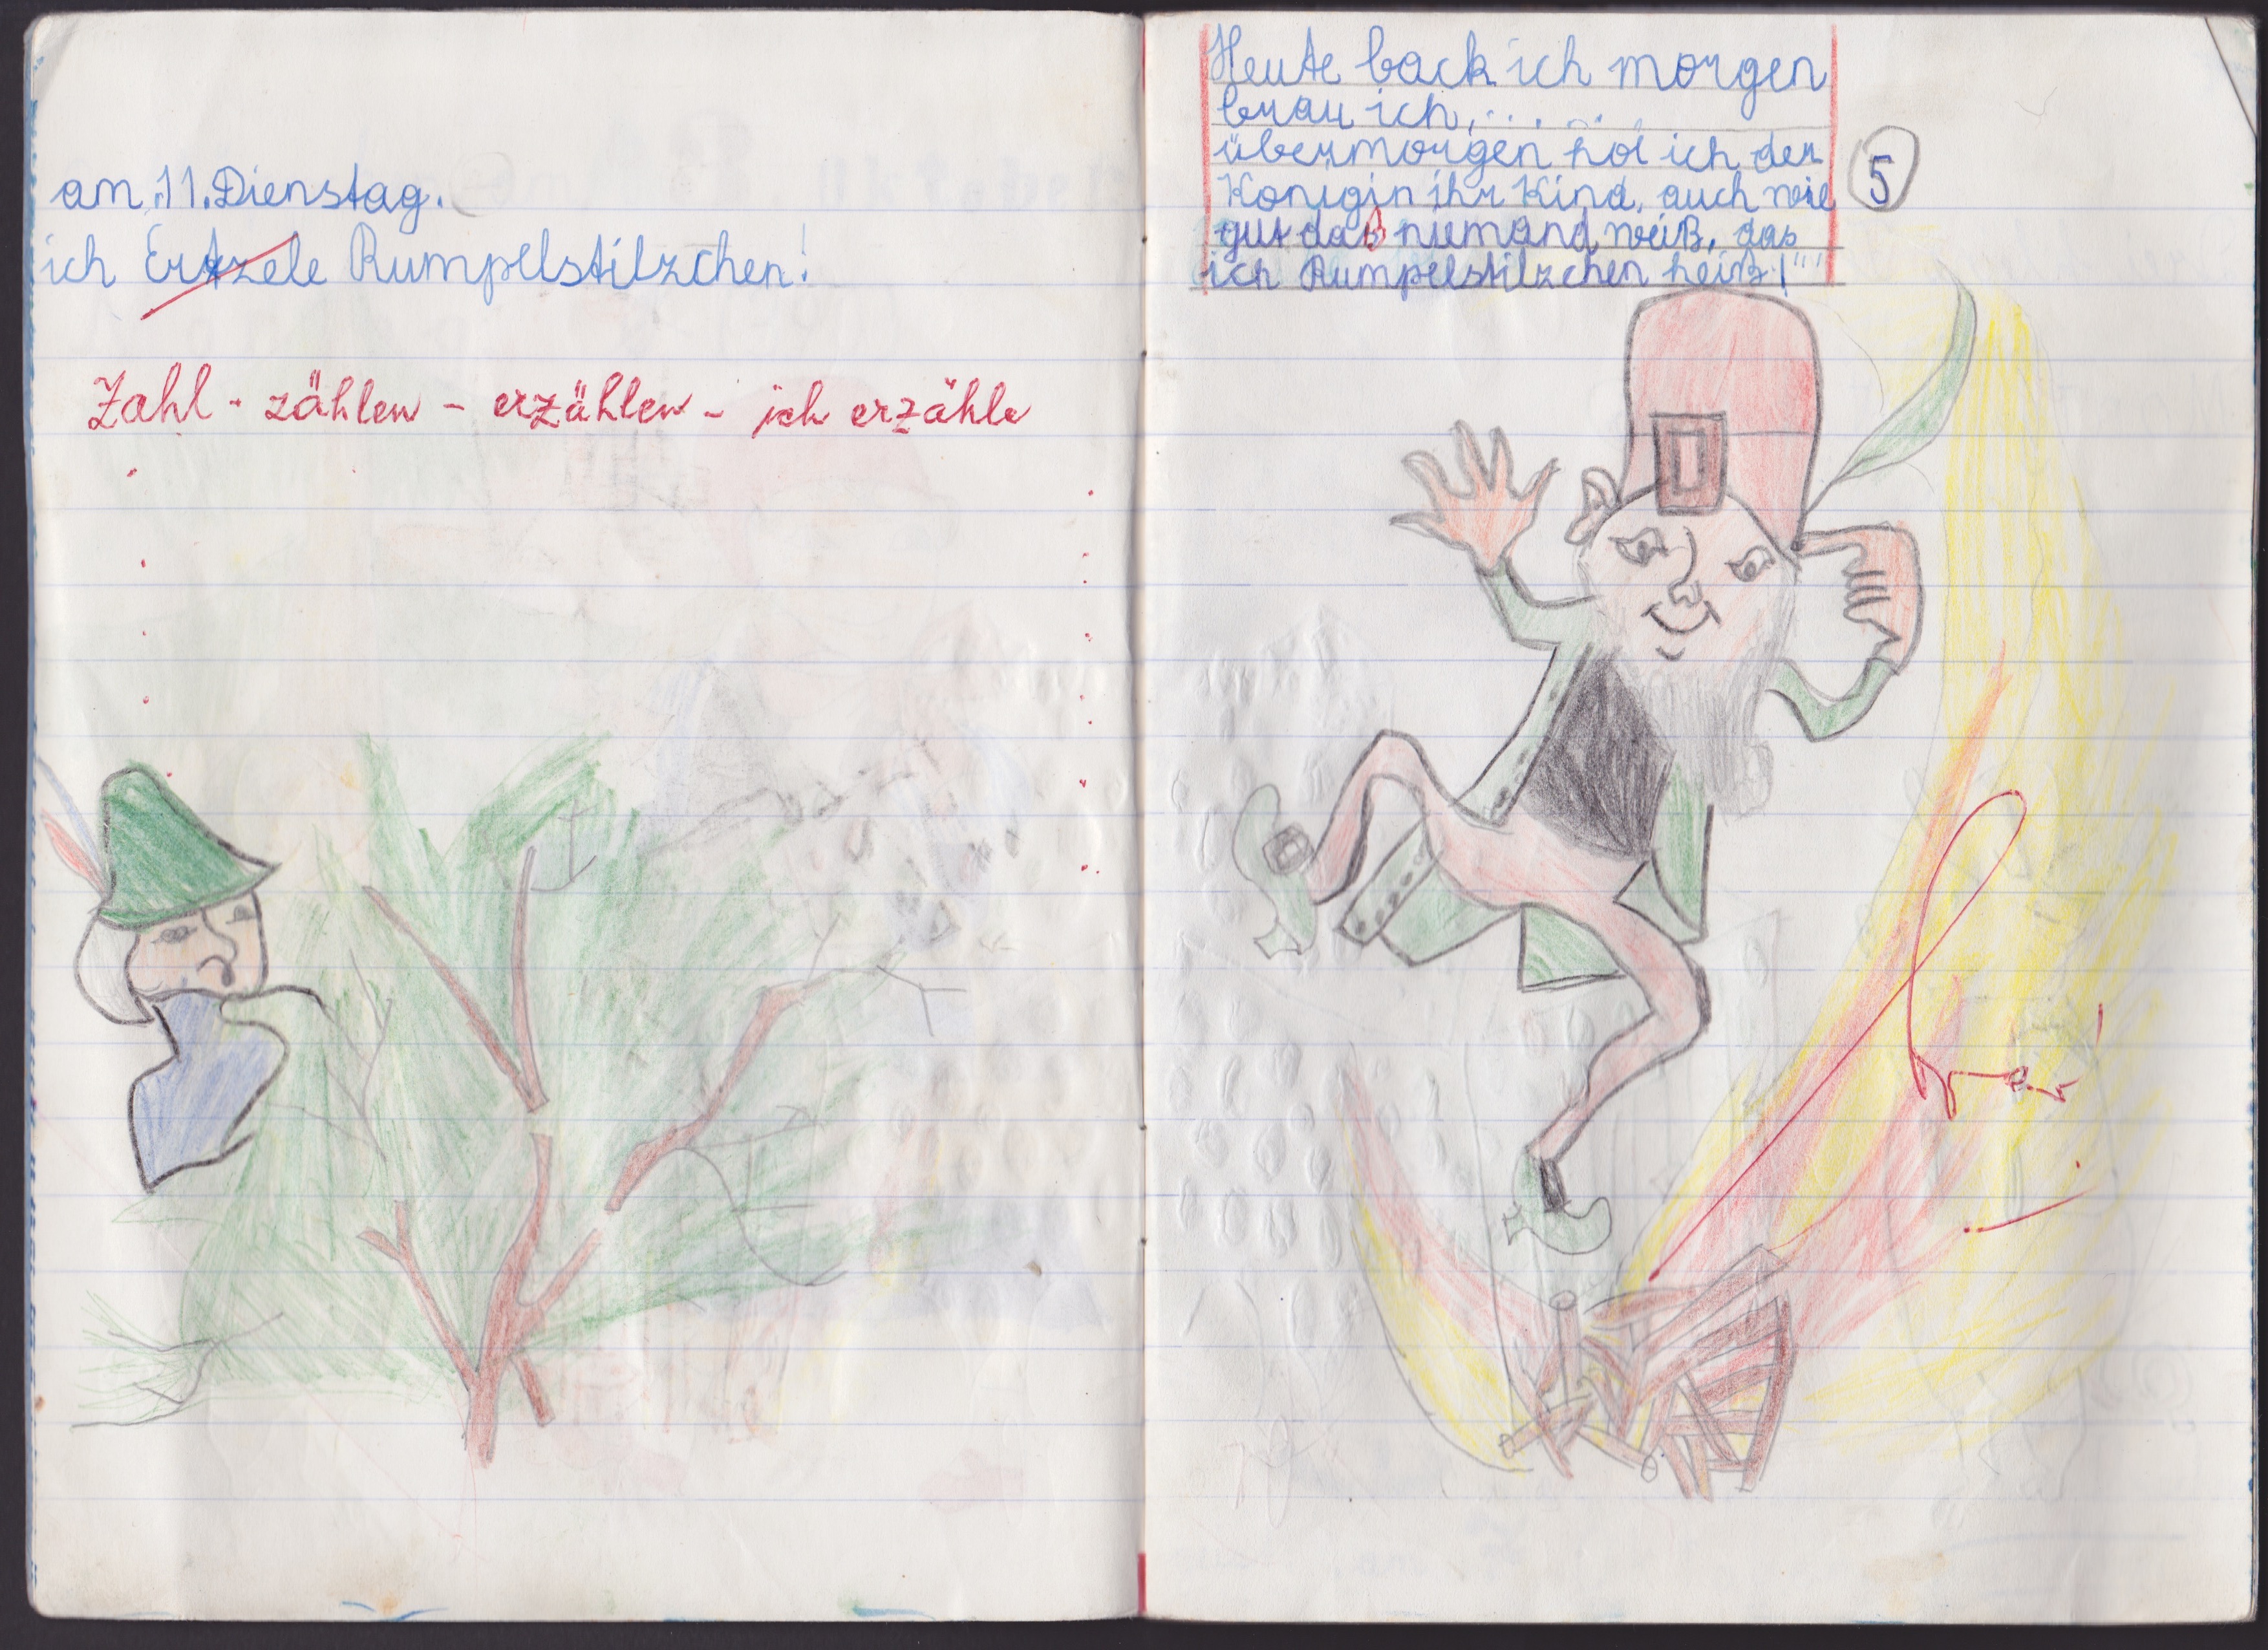 am 11. Dienstag.
ich Ertzele Rumpelstilzchen!
Zahl - zählen - erzählen - ich erzähle
Heute back ich morgen
brau ich, . . . . .
übermorgen hol ich der
Königin ihr Kind, auch wie
gut daß niemand weiß, das
ich Rumpelstilzchen heiß!"
5